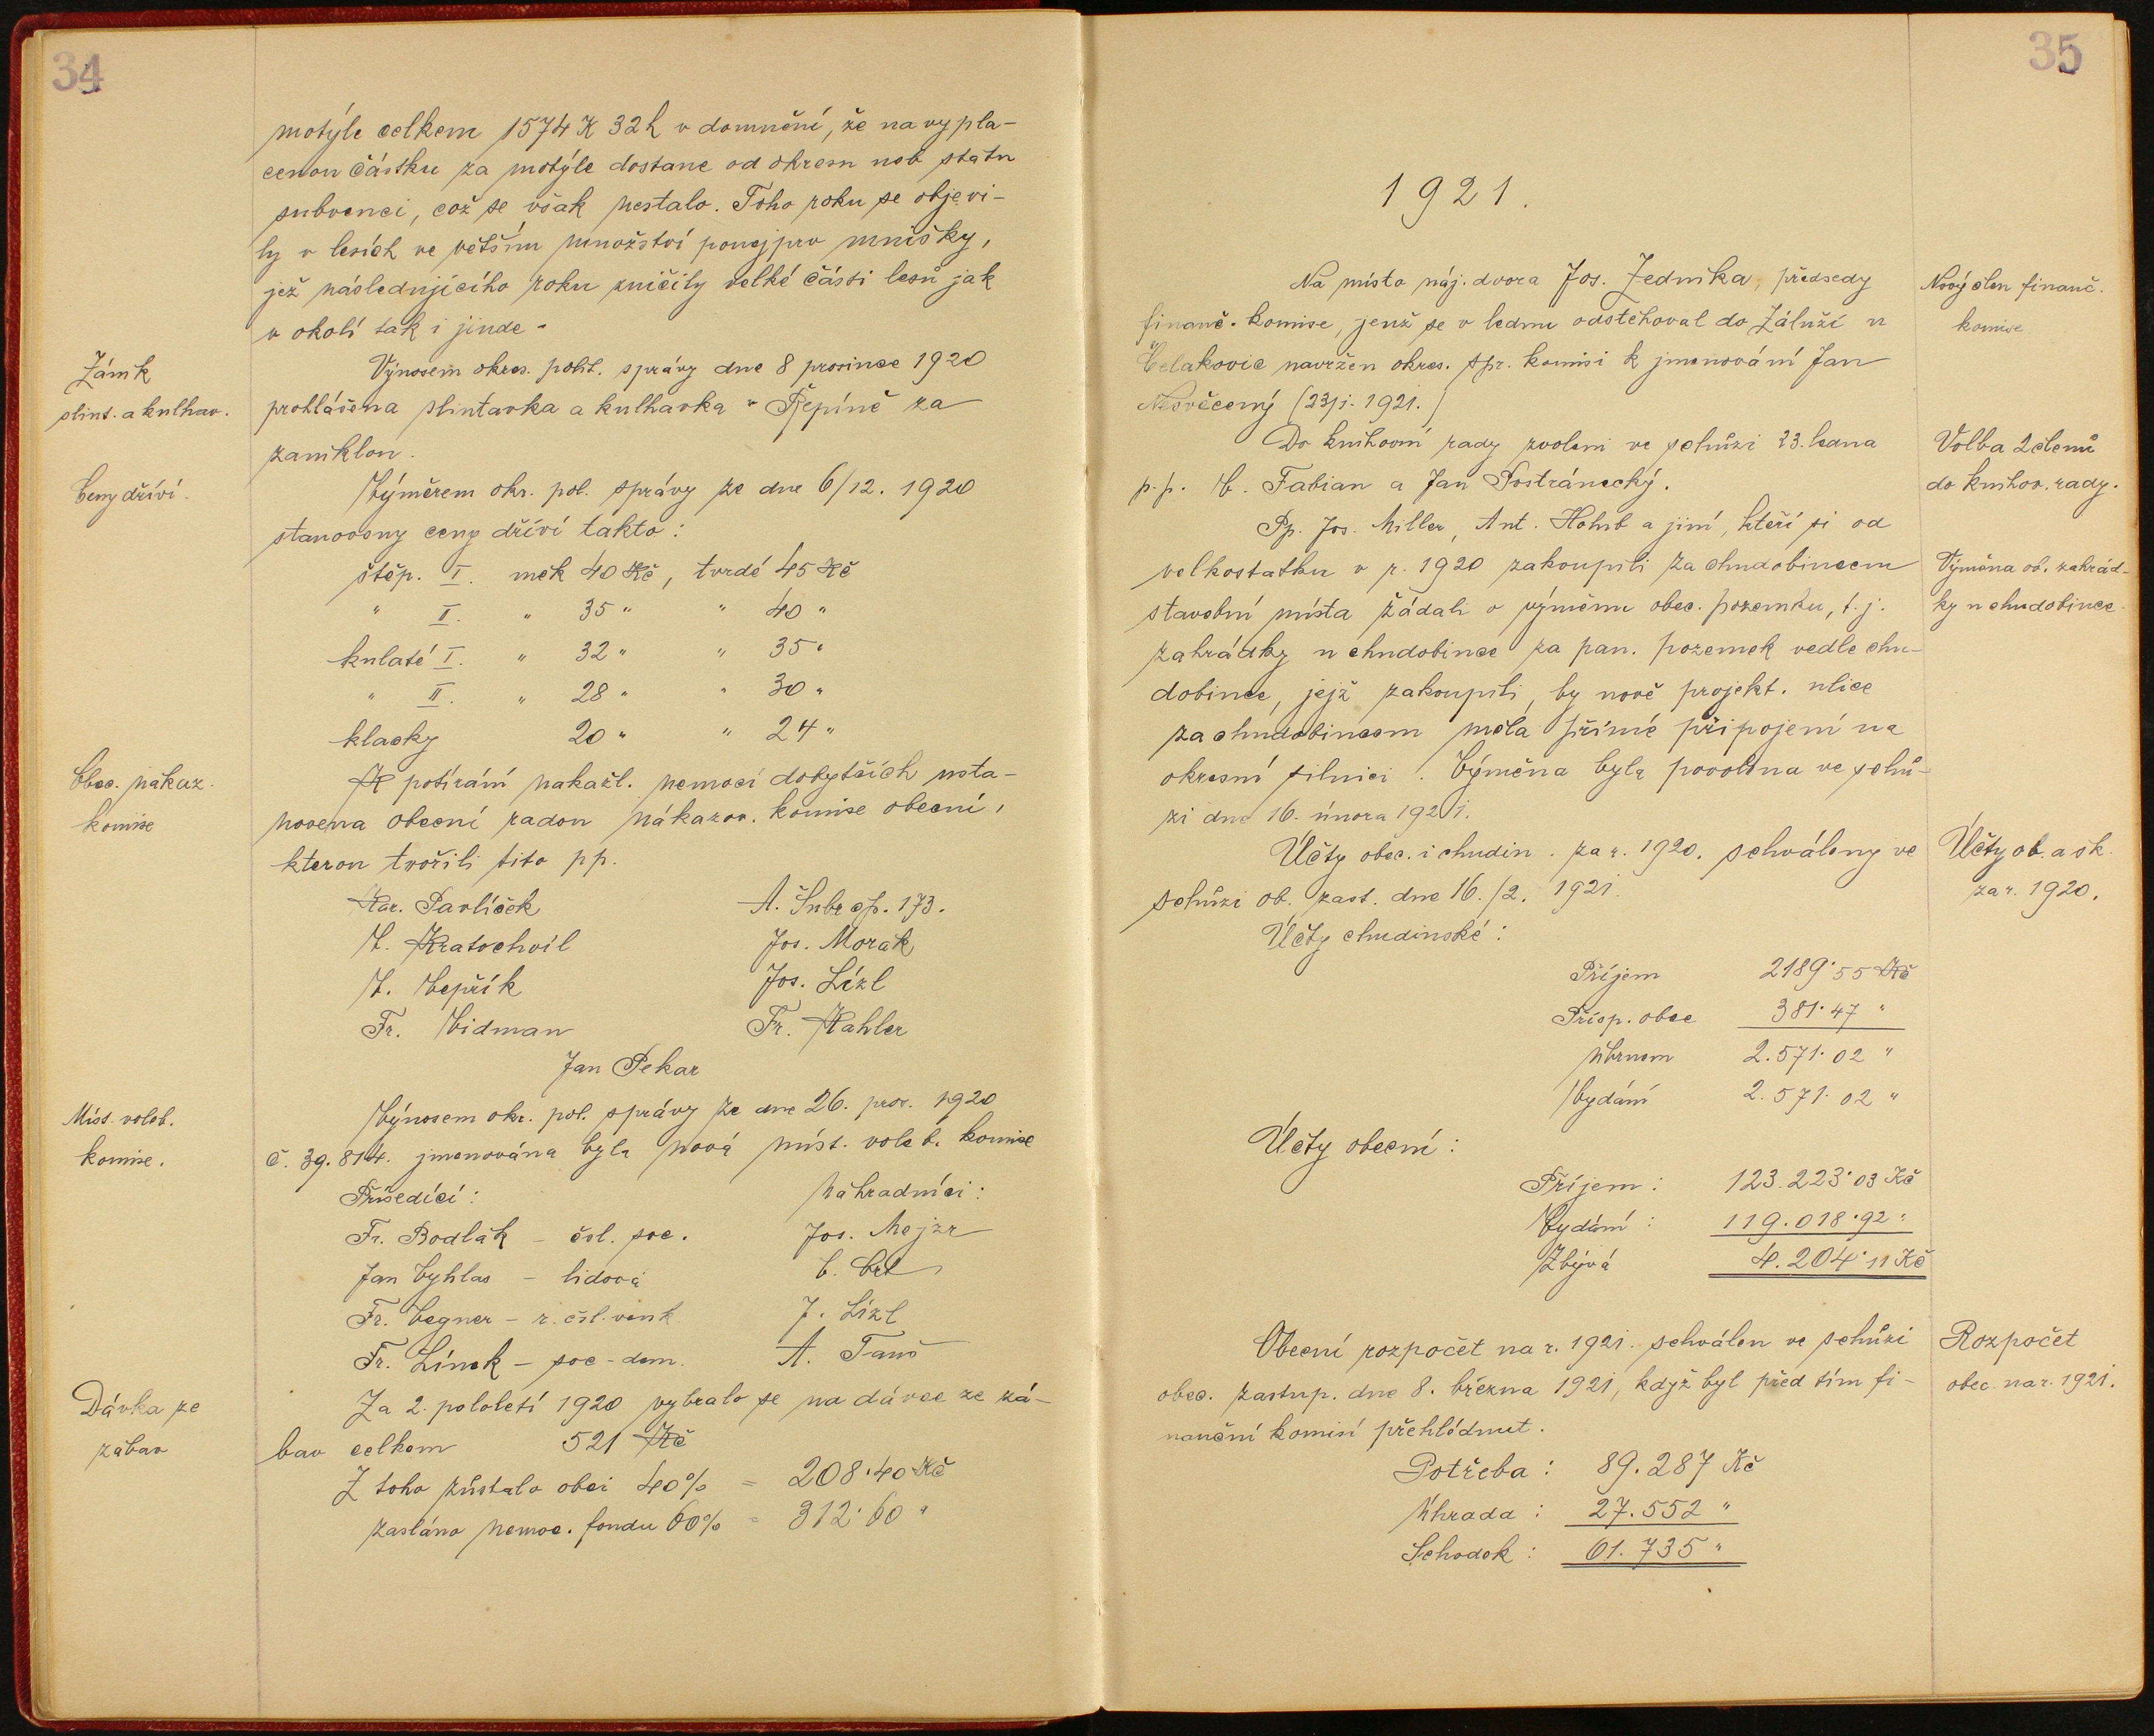 34
motýle celkem 1574 K 32 h v domnění, že na vypla-
cenou částku za motýle dostane od okresu neb státu
subvenci, což se však nestalo. Toho roku se objevi-
ly v lesích ve větším množství ponejprv mnišky,
jež následujícího roku zničily velké části lesů jak
v okolí tak i jinde.
Zánik
slint. a kulhav.
Výnosem okres. polit. správy dne 8 prosince 1920
prohlášena slintavka a kulhavka v Řepíně za
zaniklou.
Ceny dříví.
Výměrem okr. pol. správy ze dne 6/12. 1920
stanoveny ceny dříví takto:
štěp. I. měk 40 Kč, tvrdé 45 Kč
" II. " 35 " " 40 "
kulaté I. " 32 " " 35 "
" II. " 28 " " 30 "
klacky 20 " " 24 "
Obec. nákaz.
komise
K potírání nakažl. nemocí dobytčích usta-
novena obecní radou nákazov. komise obecní,
kterou tvořili tito pp.
Kar. Pavlíček A. Šubr čp. 173.
V. Kratochvíl Jos. Morák
V. Vepřík Jos. Lízl
Fr. Vidman Fr. Kahler
Jan Pekar
Míst. voleb.
komise.
Výnosem okr. pol. správy ze dne 26. pros. 1920
č. 39.814. jmenována byla nová míst. voleb. komise
Přísedící: Náhradníci:
Fr. Bodlák – čsl. soc. Jos. Mejzr
Jan Vyhlas – lidová
Fr. Vegner – r. čsl. venk J. Lízl
Fr. Línek – soc-dem. A.
Dávka ze
zábav
Za 2. pololetí 1920 vybralo se na dávce ze zá-
bav celkem 521 Kč
Z toho zůstalo obci 40% = 208·40 Kč
zasláno nemoc. fondu 60% = 312·60 "
35
1921.
Nový člen finanč.
komise
Na místo náj. dvora Jos. Jedníka, předsedy
finanč. komise, jenž se v lednu odstěhoval do Záluží u
Čelakovic navržen okres. spr. komisi k jmenování Jan
Nesvěcený (23/i. 1921.)
Volba 2 členů
do knihov. rady.
Do knihovní rady zvoleni ve schůzi 23. ledna
p.p. Fabian a Jan Postránecký.
Výměna ob. zahrád-
ky u chudobince.
Pp. Jos. Miller, Ant. Holub a jiní, kteří si od
velkostatku v r. 1920 zakoupili za chudobincem
stavební místa žádali o výměnu obec. pozemku, t. j.
zahrádky u chudobince za pan. pozemek vedle chu-
dobince, jejž zakoupili, by nově projekt. ulice
za chudobincem měla přímé připojení na
okresní silnici. Výměna byla povolena ve schů-
zi dne 16. února 1921.
Účty ob. a šk.
za r. 1920.
Účty obec. i chudin. za r. 1920. schváleny ve
schůzi ob. zast. dne 16./2. 1921.
Účty chudinské:
Příjem 2189·55 Kč
Přísp. obce 381·47 "
Úhrnem 2.571·02 "
Vydání 2.571·02 "
Účty obecní:
Příjem: 123.223·03 Kč
Vydání: 119.018·92 "
Zbývá 4.204·11 Kč
Rozpočet
obec. na r. 1921.
Obecní rozpočet na r. 1921. schválen ve schůzi
obec. zastup. dne 8. března 1921, když byl před tím fi-
nanční komisí přehlédnut.
Potřeba: 89.287 Kč
Úhrada: 27.552 "
Schodek: 61.735 "